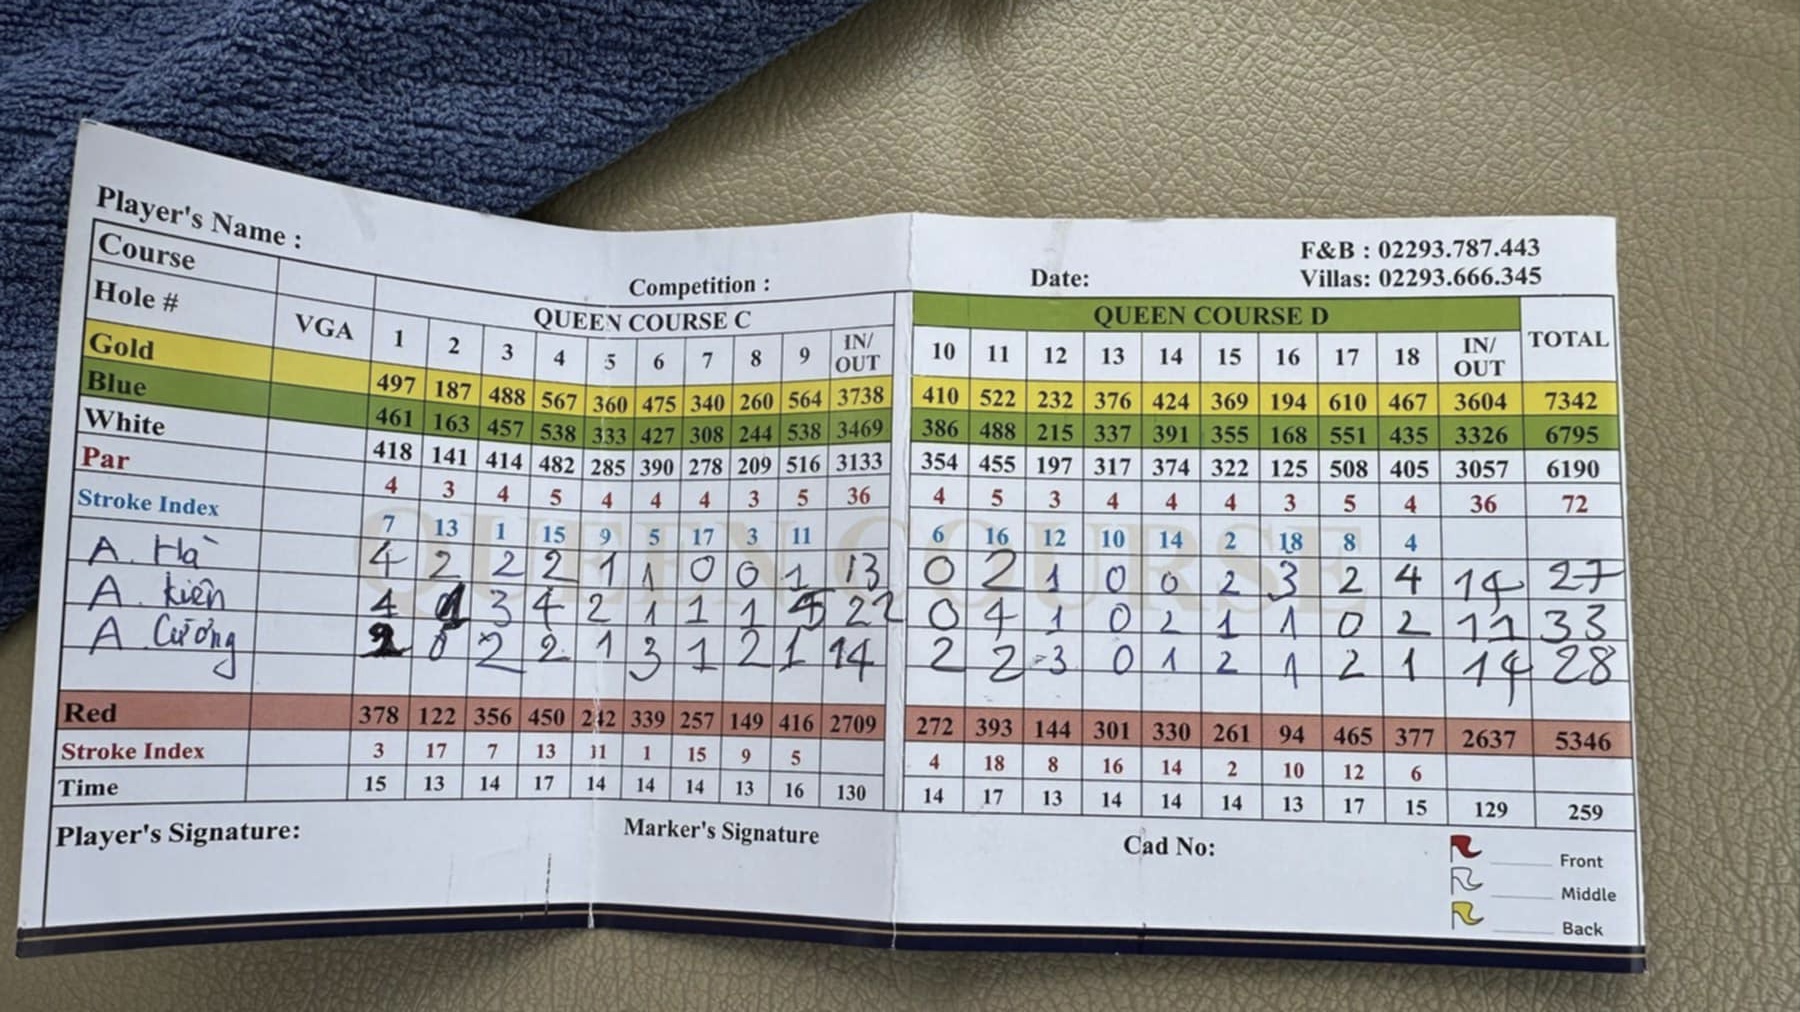 Player's Name :
Competition :
Date:
F&B : 02293.787.443
Villas: 02293.666.345
Course QUEEN COURSE C QUEEN COURSE D TOTAL
Hole # VGA 1 2 3 4 5 6 7 8 9 IN/OUT 10 11 12 13 14 15 16 17 18 IN/OUT
Gold 497 187 488 567 360 475 340 260 564 3738 410 522 232 376 424 369 194 610 467 3604 7342
Blue 461 163 457 538 333 427 308 244 538 3469 386 488 215 337 391 355 168 551 435 3326 6795
White 418 141 414 482 285 390 278 209 516 3133 354 455 197 317 374 322 125 508 405 3057 6190
Par 4 3 4 5 4 4 4 3 5 36 4 5 3 4 4 4 3 5 4 36 72
Stroke Index 7 13 1 15 9 5 17 3 11 6 16 12 10 14 2 18 8 4
A. Hà 4 2 2 2 1 1 0 0 1 13 0 2 1 0 0 2 3 2 4 14 27
A. Kiên 4 3 4 2 1 1 1 5 22 0 4 1 0 2 1 1 0 2 11 33
A. Cường 2 0 2 2 1 3 1 2 1 14 2 2 3 0 1 2 1 2 1 14 28
QUEEN COURSE
Red 378 122 356 450 242 339 257 149 416 2709 272 393 144 301 330 261 94 465 377 2637 5346
Stroke Index 3 17 7 13 11 1 15 9 5 4 18 8 16 14 2 10 12 6
Time 15 13 14 17 14 14 14 13 16 130 14 17 13 14 14 14 13 17 15 129 259
Player's Signature:
Marker's Signature
Cad No:
Front
Middle
Back